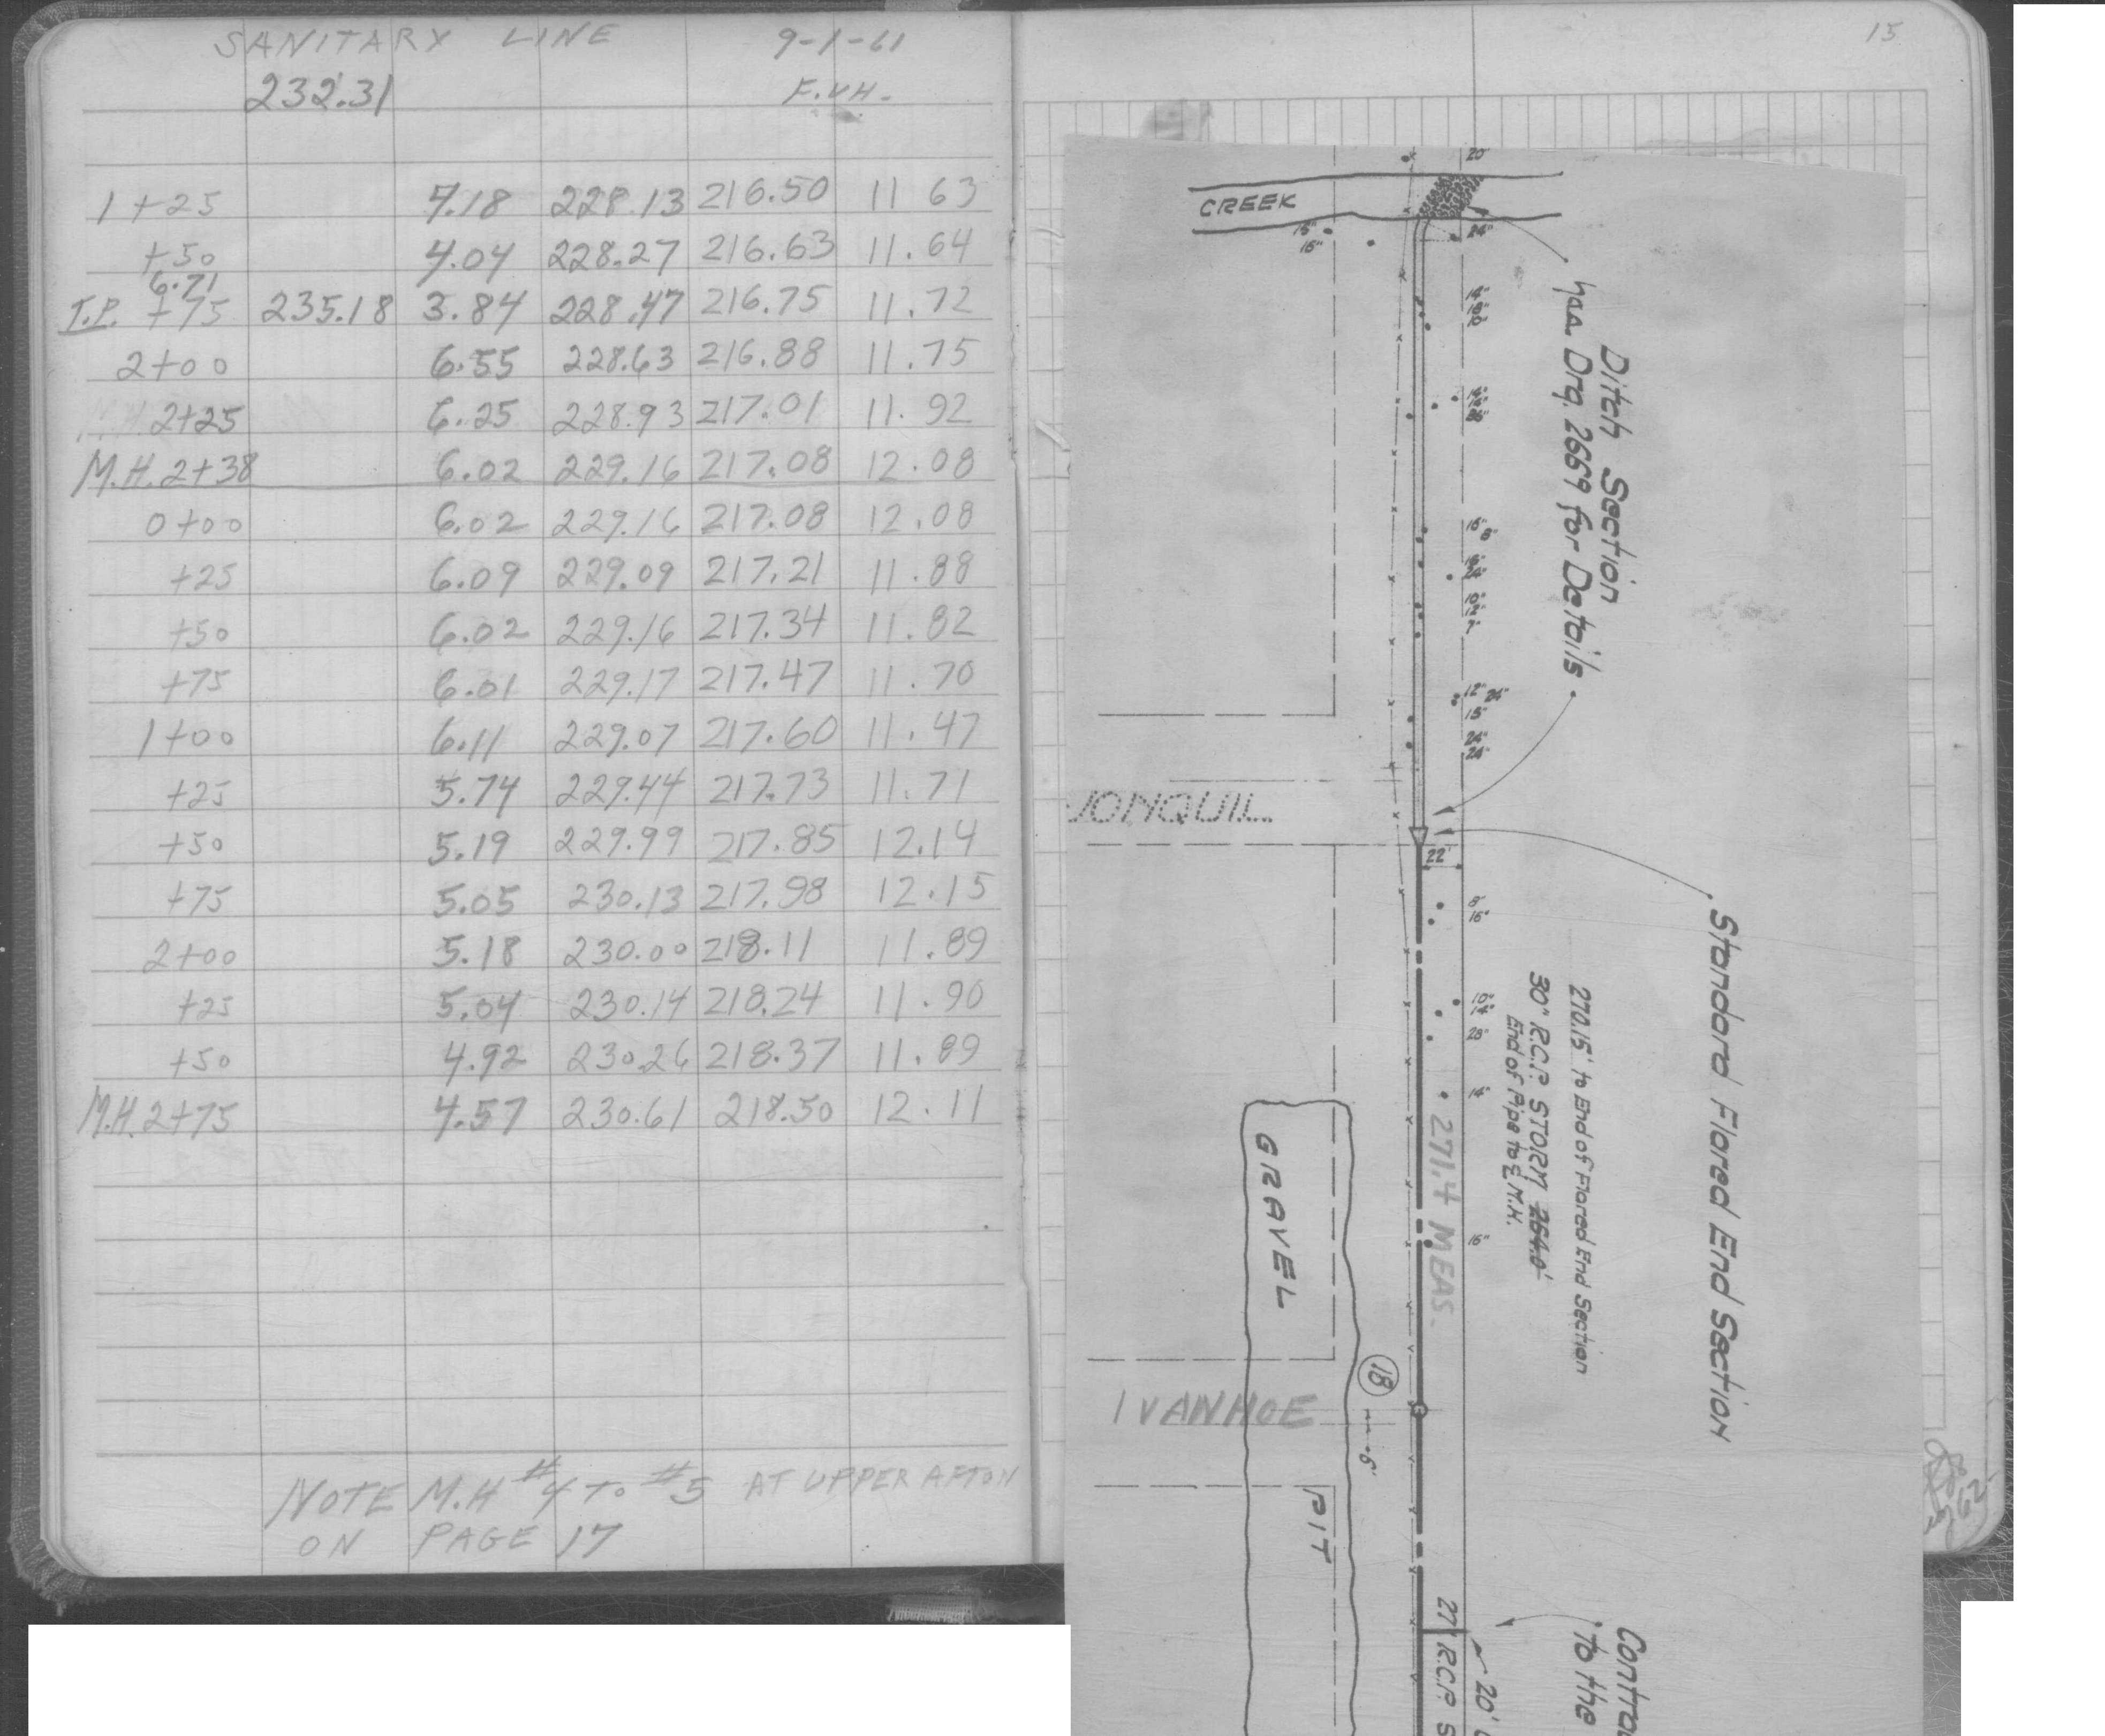 SANITARY LINE 9-1-61
232.31 F.V.H.
1+25 4.18 228.13 216.50 11 63
+50 4.04 228.27 216.63 11.64
6.71
T.P. +75 235.18 3.84 228.47 216.75 11.72
2+00 6.55 228.63 216.88 11.75
M.H. 2+25 6.25 228.93 217.01 11.92
M.H. 2+38 6.02 229.16 217.08 12.08
0+00 6.02 229.16 217.08 12.08
+25 6.09 229.09 217.21 11.88
+50 6.02 229.16 217.34 11.82
+75 6.01 229.17 217.47 11.70
1+00 6.11 229.07 217.60 11.47
+25 5.74 229.44 217.73 11.71
+50 5.19 229.99 217.85 12.14
+75 5.05 230.13 217.98 12.15
2+00 5.18 230.00 218.11 11.89
+25 5.04 230.14 218.24 11.90
+50 4.92 230.26 218.37 11.89
M.H. 2+75 4.57 230.61 218.50 12.11
NOTE M.H #4 TO #5 AT UPPER AFTON
ON PAGE 17
15
20"
CREEK
15"
16"
24"
14"
18"
10"
14"
14"
26"
Ditch Section
Drg. 2669 for Details
16"
8"
16"
24"
10"
12"
7"
12" 24"
15"
24"
24"
JONQUIL
22'
8"
16"
Standard Flared End Section
270.15' to End of Flared End Section
30" R.C.P. STORM 264.0'
End of Pipe to ℄ M.H.
10"
14"
28"
14"
271.4 MEAS.
16"
GRAVEL
PIT
18
6"
IVANHOE
27" R.C.P. S
20'
Contra
to the
62